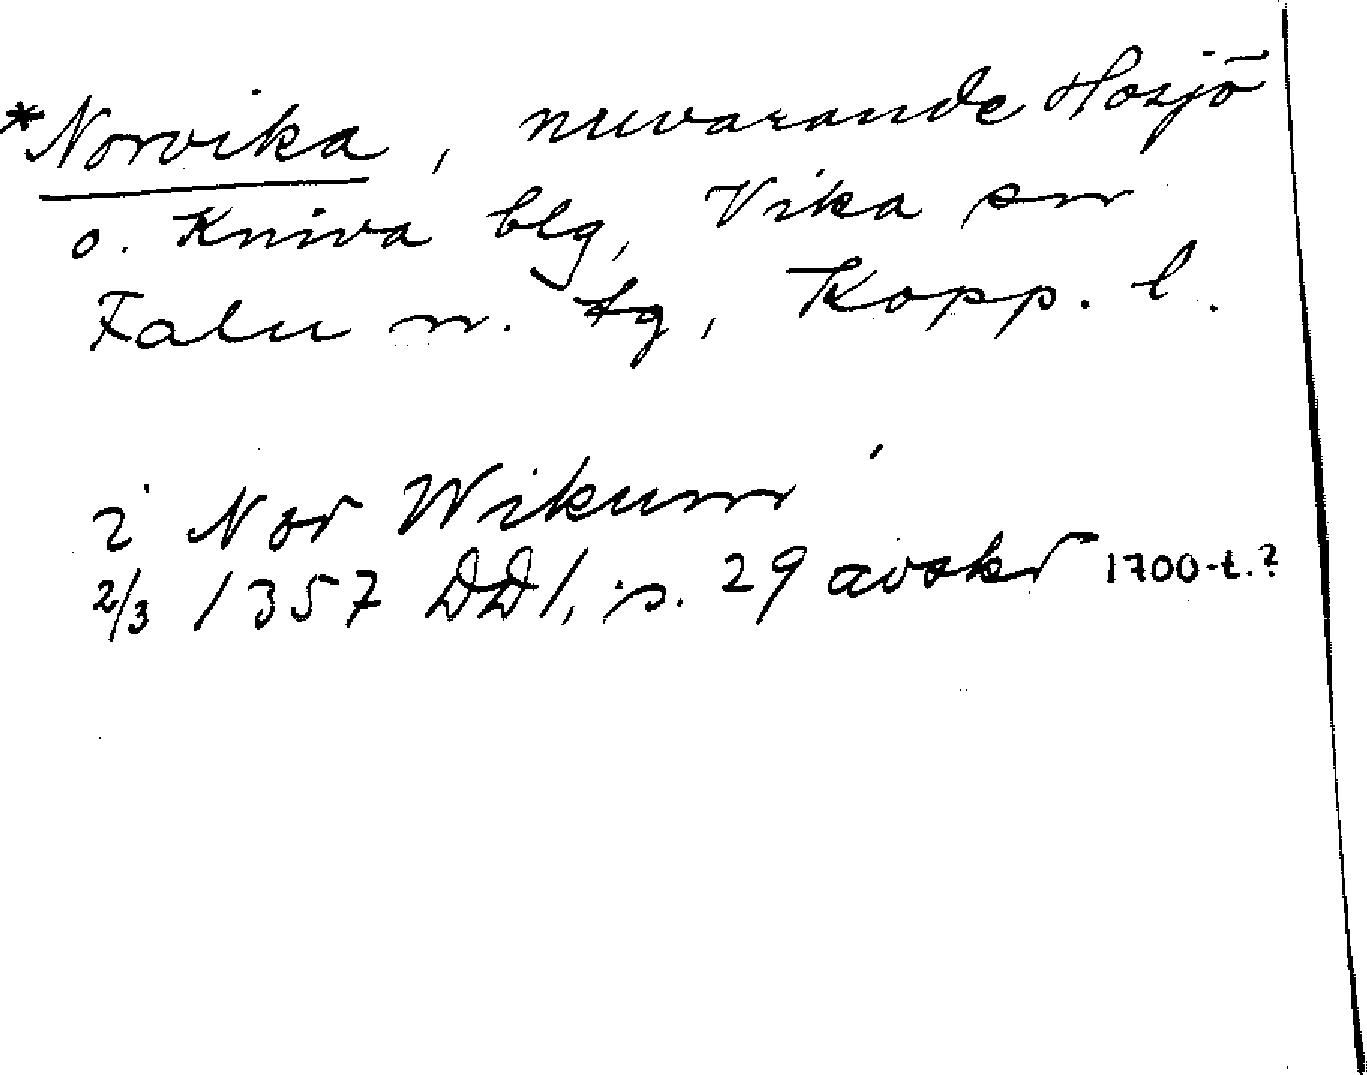 *Norvika, nuvarande Hosjö
o. Kniva blg, Vika sn
Falu n. tg, Kopp. l.
i Nor Wikum
2/3 1357 DD1, s. 29 avskr 1700-t.?